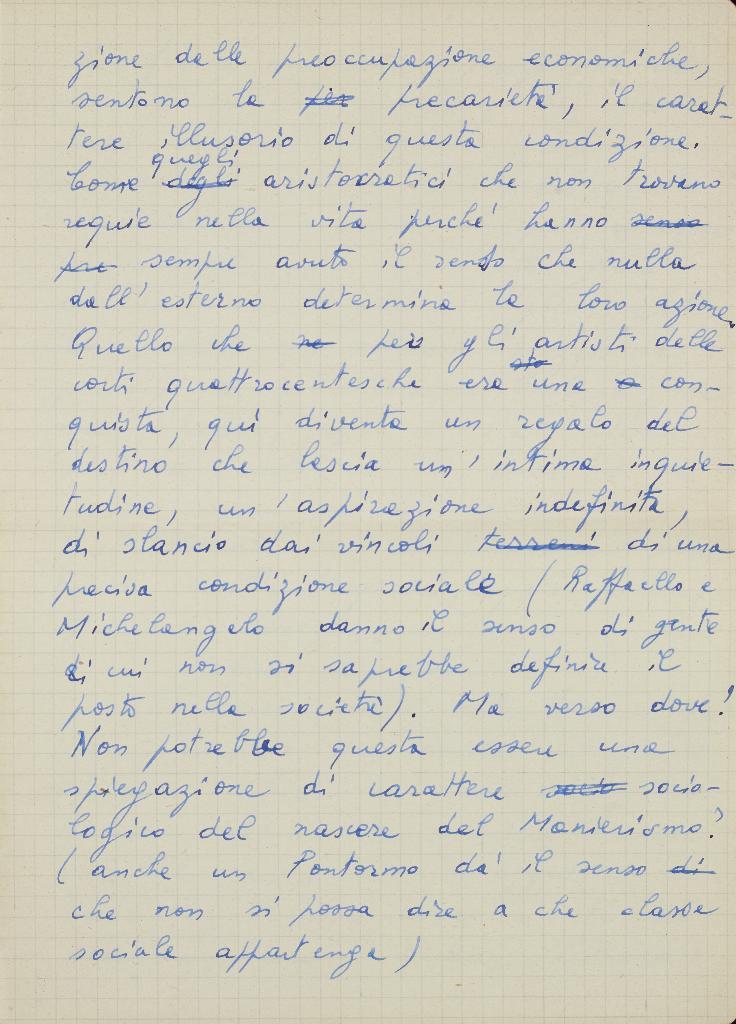 zione dalle preoccupazione economiche,
sentono la per precarietà, il carat-
tere illusorio di questa condizione.
quegli
Come degli aristocratici che non trovano
requie nella vita perché hanno senso
pre sempre avuto il senso che nulla
dall'esterno determina la loro azione.
Quello che ne per gli artisti delle
sta
corti quattrocentesche era una a con-
quista, qui diventa un regalo del
destino che lascia un'intima inquie-
tudine, un'aspirazione indefinita,
di slancio dai vincoli terreni di una
precisa condizione sociale (Raffaello e
Michelangelo danno il senso di gente
di cui non si saprebbe definire il
posto nella società). Ma verso dove?
Non potrebbe questa essere una
spiegazione di carattere socio socio-
logico del nascere del Manierismo?
(anche un Pontormo dà il senso di
che non si possa dire a che classe
sociale appartenga)